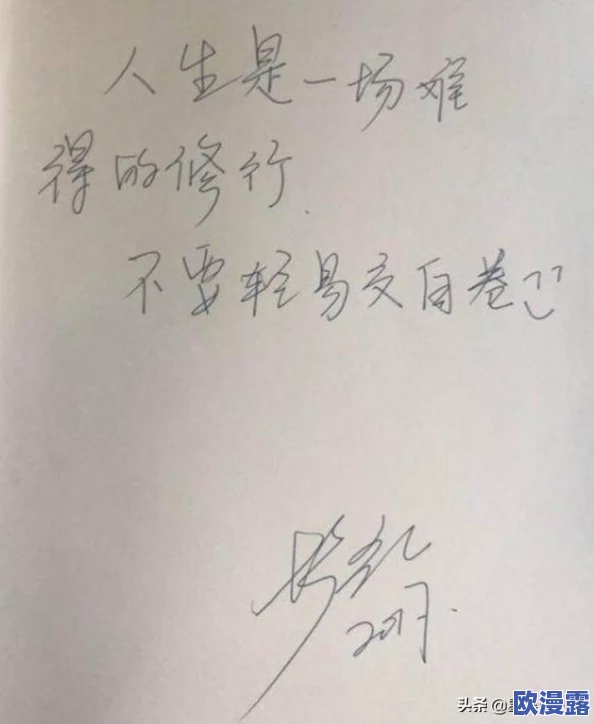 人生是一场难
得的修行
不要轻易交白卷
2017.
头条 @
欧漫露